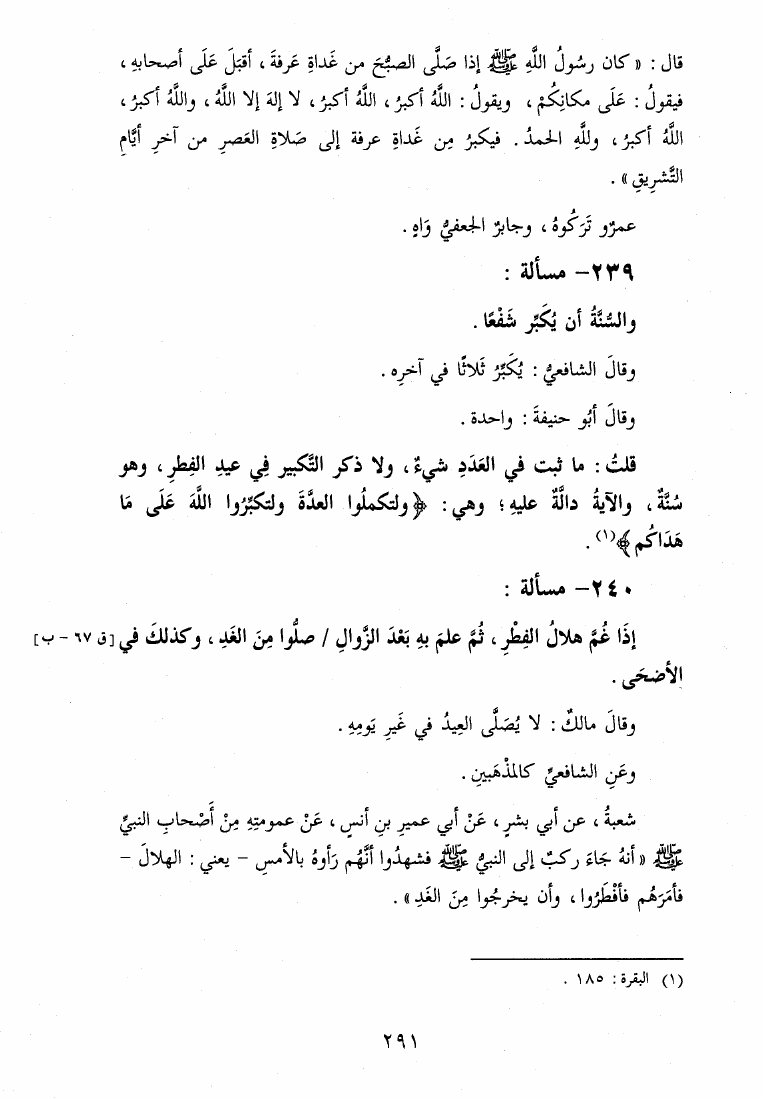 قال : « كان رسُولُ اللَّهِ ﷺ إذا صَلَّى الصبُّحَ من غَداةِ عَرفةَ ، أقبَلَ عَلَى أصحابهِ ،
فيقولُ : عَلَى مكانِكُمْ ، ويقولُ : اللَّهُ أكبرُ ، اللَّهُ أكبرُ ، لا إلهَ إلا اللَّهُ ، واللَّهُ أكبرُ ،
اللَّهُ أكبرُ ، وللَّهِ الحمدُ . فيكبرُ مِن غَداةِ عرفة إلى صَلاةِ العَصرِ من آخرِ أيَّامِ
التَّشريقِ » .
عمرٌو تَرَكُوهُ ، وجابرٌ الجعفيُّ وَاهٍ .
٢٣٩- مسألة :
والسُّنَّةُ أن يُكَبِّر شَفْعًا .
وقالَ الشافعيُّ : يُكَبِّرُ ثَلاثًا في آخرِه .
وقالَ أبُو حنيفةَ : واحدة .
قلتُ : ما ثبت في العَدَدِ شيءٌ ، ولا ذكر التَّكبير فِي عيدِ الفِطرِ ، وهو
سُنَّةٌ ، والآيةُ دالَّةٌ عليهِ ؛ وهي : ﴿ولتكملُوا العدَّةَ ولتكبِّرُوا اللَّهَ عَلَى مَا
هَدَاكُم﴾(١) .
٢٤٠- مسألة :
إذَا غُمَّ هلالُ الفِطْرِ ، ثُمَّ علمَ بهِ بَعْدَ الزَّوالِ / صلُّوا مِنَ الغَدِ ، وكذلكَ في [ق ٦٧ - ب]
الأضحَى .
وقالَ مالكٌ : لا يُصَلَّى العِيدُ في غَيرِ يَومِهِ .
وعَنِ الشافعيِّ كالمذْهَبَينِ .
شعبةُ ، عن أبي بشرٍ ، عَنْ أبي عميرِ بنِ أنسٍ ، عَنْ عمومتِهِ مِنْ أَصْحابِ النبيِّ
ﷺ « أنهُ جَاءَ ركبٌ إلى النبيُّ ﷺ فشهدُوا أنَّهُم رَأوهُ بالأمسِ - يعني : الهلالَ -
فأمَرَهُم فأفْطَرُوا ، وأن يخرجُوا مِنَ الغَدِ » .
(١) البقرة : ١٨٥ .
٢٩١